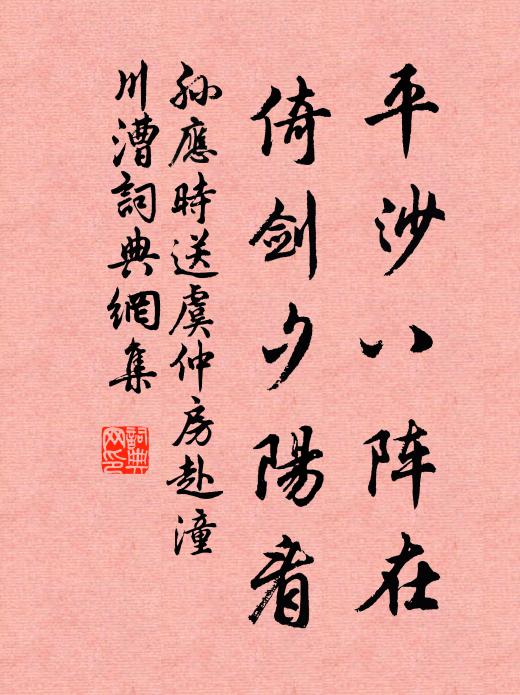 平沙八阵在
倚劍夕陽看
孫應時送虞仲房赴潼
川漕詞典網集
詞典
网印